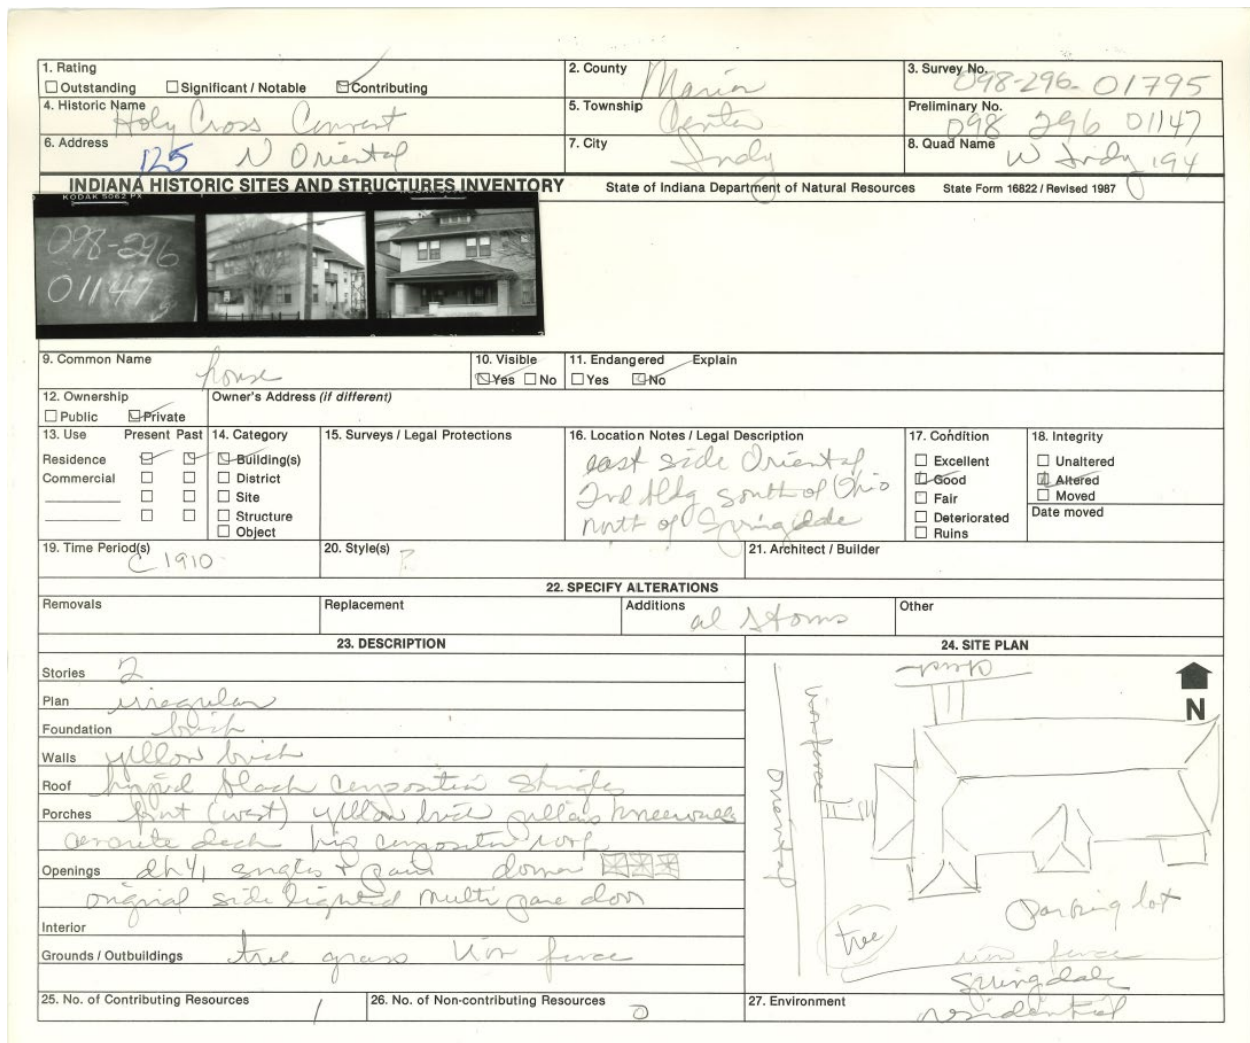 1. Rating
Outstanding Significant / Notable Contributing
2. County Marion
3. Survey No. 098-296-01795
4. Historic Name Holy Cross Convent
5. Township Center
Preliminary No. 098 296 01147
6. Address 125 N Oriental
7. City Indy
8. Quad Name W Indy 194
INDIANA HISTORIC SITES AND STRUCTURES INVENTORY State of Indiana Department of Natural Resources State Form 16822 / Revised 1987
KODAK 5062 PX
098-296
01147
9. Common Name house
10. Visible
Yes No
11. Endangered Explain
Yes No
12. Ownership
Public Private
Owner's Address (if different)
13. Use Present Past
Residence
Commercial
14. Category
Building(s)
District
Site
Structure
Object
15. Surveys / Legal Protections
16. Location Notes / Legal Description
east side Oriental
2nd bldg south of Ohio
north of Springdale
17. Condition
Excellent
Good
Fair
Deteriorated
Ruins
18. Integrity
Unaltered
Altered
Moved
Date moved
19. Time Period(s) C 1910
20. Style(s) ?
21. Architect / Builder
22. SPECIFY ALTERATIONS
Removals
Replacement
Additions al storms
Other
23. DESCRIPTION
Stories 2
Plan irregular
Foundation brick
Walls yellow brick
Roof hipped black composition shingles
Porches front (west) yellow brick pillars kneewalls
concrete deck hip composition roof
Openings dh 1/1 singles + pairs dormer
original side lighted multi pane door
Interior
Grounds / Outbuildings tree grass iron fence
25. No. of Contributing Resources 1
26. No. of Non-contributing Resources 0
24. SITE PLAN
N
iron fence
Oriental
tree
parking lot
iron fence
Springdale
27. Environment residential